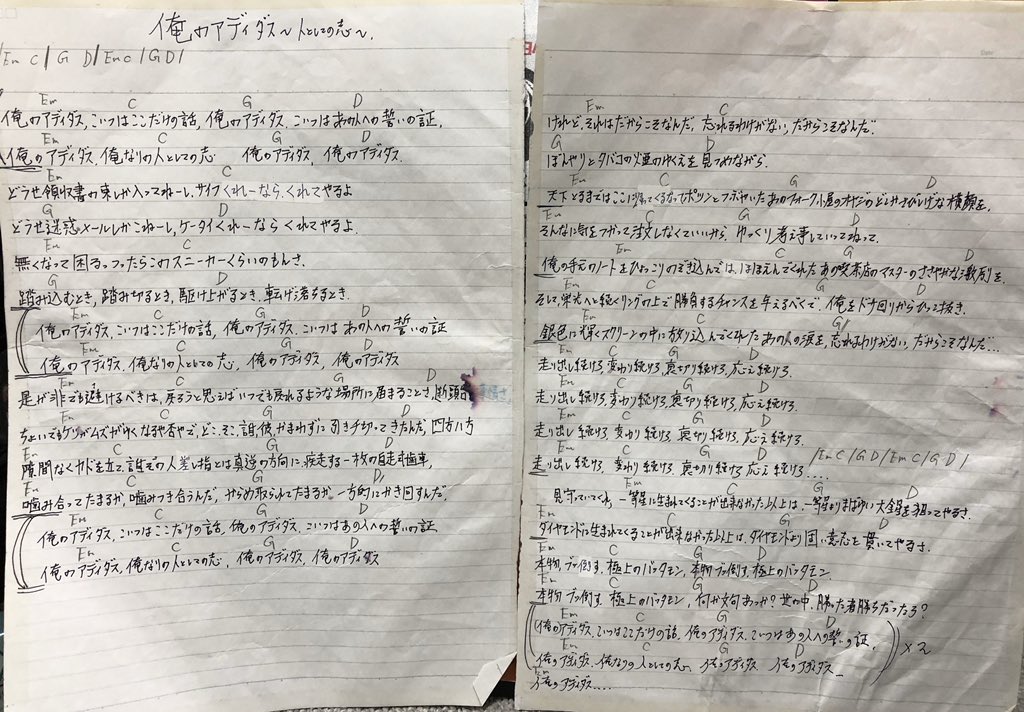 俺のアディダス〜人としての志〜
/Em C/G D/Em C/G D/
Em C G D
俺のアディダス、こいつはここだけの話、俺のアディダス、こいつはあの人への誓いの証、
Em C G D
俺のアディダス、俺なりの人としての志 俺のアディダス、俺のアディダス、
Em C
どうせ領収書の束しか入ってねーし、サイフくれーなら、くれてやるよ
G D
どうせ迷惑メールしかこねーし、ケータイくれーなら くれてやるよ、
Em C
無くなって困るっつったらこのスニーカーくらいのもんさ、
G D
踏み込むとき、踏み切るとき、駆け上がるとき、転げ落ちるとき、
Em C G D
俺のアディダス、こいつはここだけの話、俺のアディダス、こいつは あの人への誓いの証
Em C G D
俺のアディダス、俺なりの人としての志、俺のアディダス、俺のアディダス
Em C G D
是が非でも避けるべきは、戻ろうと思えばいつでも戻れるような場所に留まることさ、断頭台
Em C G D
ちょいでもケツがムズがゆくなるや否やで、どこそこ、誰彼かまわずに引きチ切ってきたんだ、四方八方
Em C G D
隙間なくキバを立て、誰ぞの人差し指とは真逆の方向に、疾走する一枚の自走式歯車、
Em C G D
噛み合ってたまるか、噛みつき合うんだ、からめ取られてたまるか、一方的にかき回すんだ、
Em C G D
俺のアディダス、こいつはここだけの話、俺のアディダス、こいつはあの人への誓いの証
Em C G D
俺のアディダス、俺なりの人としての志、俺のアディダス、俺のアディダス
Em C
けれど、それはだからこそなんだ、忘れるわけがない、だからこそなんだ、
G D
ぼんやりとタバコの煙のゆくえを見つめながら、
Em C G D
天下とるまではここに帰ってくるなってポツンとつぶやいたあのフォーク小屋のオヤジのどこかさびしげな横顔を、
Em C G D
そんなに気をつかって注文しなくていいから、ゆっくり考え事していってねって、
Em C G D
俺の手元のノートをひょっこりのぞき込んでは、ほほえんでくれたあの喫茶店のマスターのささやかな激励を、
Em C G D
そして、栄光へと続くリングの上で勝負するチャンスを与えるべくで、俺をドサ回りからひっこ抜き、
Em C G
銀色に輝くスクリーンの中に放り込んでくれたあの人の涙を、忘れるわけがない、だからこそなんだ…
Em C G D
走り出し続けろ、変わり続けろ、裏切り続けろ、応え続けろ、
Em C G D
走り出し続けろ、変わり続けろ、裏切り続けろ、応え続けろ、
Em C G D
走り出し続けろ、変わり続けろ、裏切り続けろ、応え続けろ、
Em C G D
走り出し続けろ、変わり続けろ、裏切り続けろ、応え続けろ…. /Em C/G D/Em C/G D/
Em C G D
見守っていてくれ、一等星に生まれてくることが出来なかった以上は、一等星よりまばゆい大金星を狙ってやるさ、
Em C G D
ダイヤモンドに生まれてくることが出来なかった以上は、ダイヤモンドより固い意志を貫いてやるさ、
Em C G D
本物ブッ倒す、極上のバッタモン、本物ブッ倒す、極上のバッタモン、
Em C G D
本物ブッ倒す、極上のバッタモン、何か文句あっか?世の中、勝った者勝ちだったろ?
Em C G D
俺のアディダス、こいつはここだけの話、俺のアディダス、こいつはあの人への誓いの証、
Em C G D
俺のアディダス、俺なりの人としての志、俺のアディダス 俺のアディダス ×2
Em
俺のアディダス….